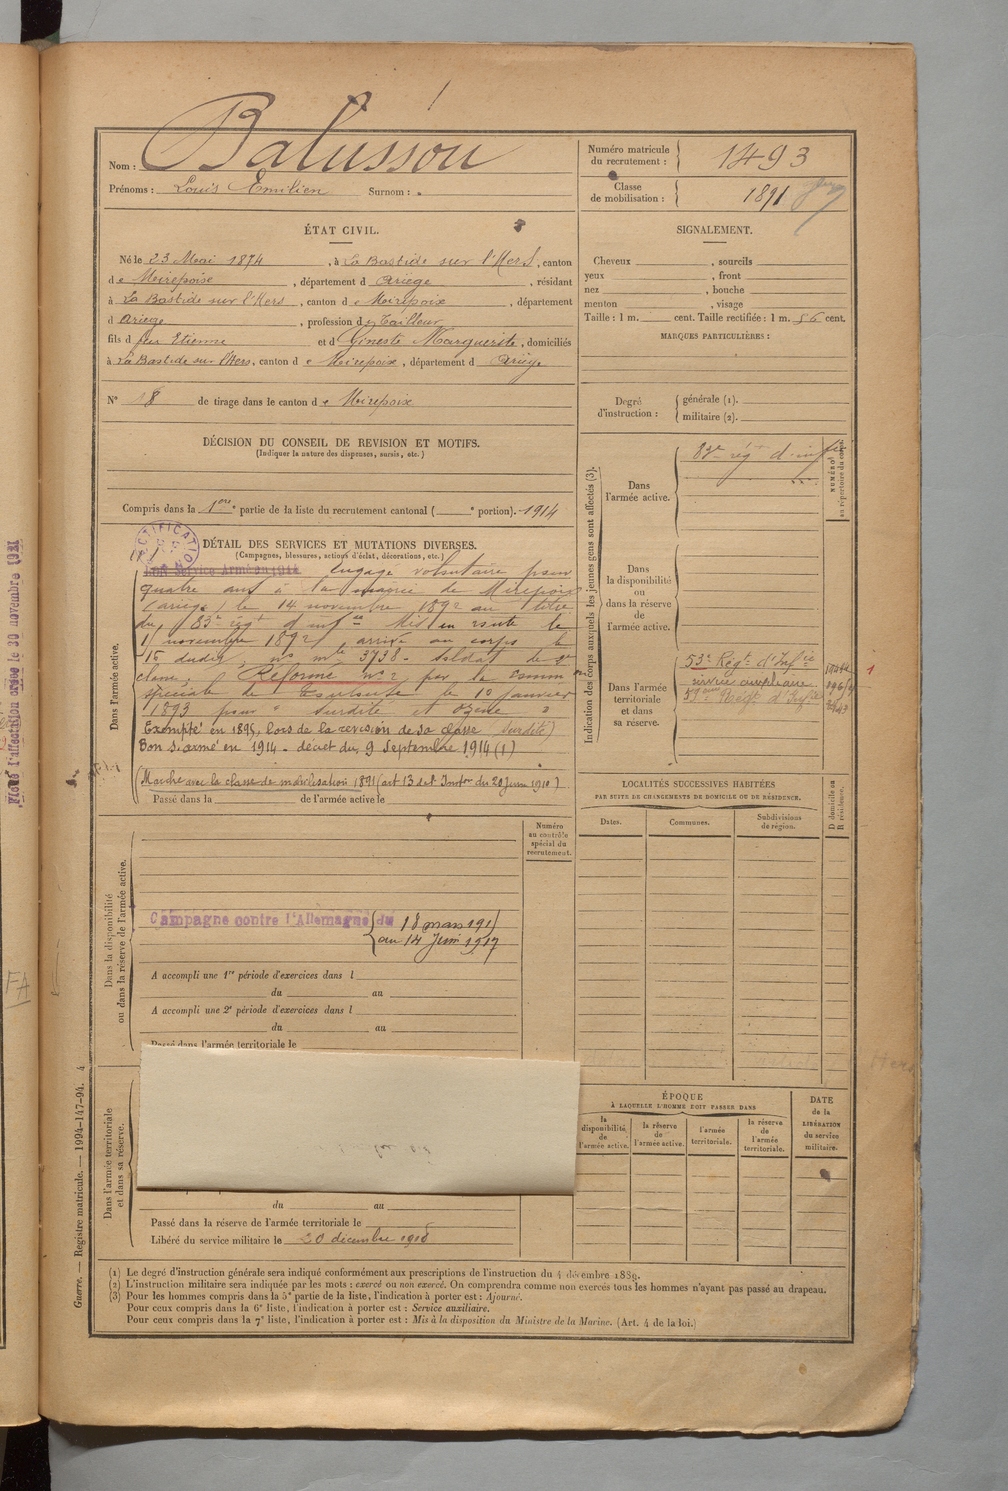 Nom : Balussou
Prénoms : Louis Emilien Surnom :
Numéro matricule du recrutement : 1493
Classe de mobilisation : 1891
ÉTAT CIVIL.
Né le 23 Mai 1874, à La Bastide sur l'Hers, canton
de Mirepoix, département d Ariège, résidant
à La Bastide sur l'Hers, canton de Mirepoix, département
d Ariege, profession de Tailleur
fils d feu Etienne et d Gineste Marguerite, domiciliés
à La Bastide sur l'Hers, canton de Mirepoix, département d Ariège
N° 18 de tirage dans le canton de Mirepoix
DÉCISION DU CONSEIL DE REVISION ET MOTIFS.
(Indiquer la nature des dispenses, sursis, etc.)
Compris dans la 1ere partie de la liste du recrutement cantonal ( e portion). 1914
SIGNALEMENT.
Cheveux , sourcils
yeux , front
nez , bouche
menton , visage
Taille : 1 m. cent. Taille rectifiée : 1 m. 56 cent.
MARQUES PARTICULIÈRES :
Degré d'instruction : générale (1).
militaire (2).
DÉTAIL DES SERVICES ET MUTATIONS DIVERSES.
(Campagnes, blessures, actions d'éclat, décorations, etc.)
Dans l'armée active.
Bon Service Armé en 1914 engagé volontaire pour
quatre ans à la mairie de Mirepoix
(ariège) le 14 novembre 1892 au titre
du 83e régt d'infie Mis en route le
novembre 1892, arrivé au corps le
15 dudit, no mle 3738. Soldat de 2e
classe, Réformé no 2, par la comm on
spéciale de Toulouse le 10 janvier
1893 pour "surdité et ozène"
Exempté en 1895, lors de la revision de sa classe (surdité)
Bon S. armé en 1914 - décret du 9 Septembre 1914 (1)
(Marche avec la classe de mobilisation 1891 (art 13 de l'Inston du 20 Juin 1910)
Passé dans la de l'armée active le
Indication des corps auxquels les jeunes gens sont affectés (3).
NUMÉROS au répertoire du corps.
Dans l'armée active.
83e régt d'infie
Dans la disponibilité ou dans la réserve de l'armée active.
Dans l'armée territoriale et dans sa réserve.
53e Régt d'Infie
service auxiliaire
Régt d'Infie
1
LOCALITÉS SUCCESSIVES HABITÉES
PAR SUITE DE CHANGEMENTS DE DOMICILE OU DE RÉSIDENCE.
Dates. Communes. Subdivisions de région.
D domicile ou R résidence.
Dans la disponibilité ou dans la réserve de l'armée active.
Numéro au contrôle spécial du recrutement.
Campagne contre l'Allemagne du 18 mars 191
au 14 Juin 1917
A accompli une 1re période d'exercices dans l
du au
A accompli une 2e période d'exercices dans l
du au
Passé dans l'armée territoriale le
Dans l'armée territoriale et dans sa réserve.
du au
Passé dans la réserve de l'armée territoriale le
Libéré du service militaire le 20 décembre 1918
ÉPOQUE
À LAQUELLE L'HOMME DOIT PASSER DANS
la disponibilité de l'armée active.
la réserve de l'armée active.
l'armée territoriale.
la réserve de l'armée territoriale.
DATE de la LIBÉRATION du service militaire.
(1) Le degré d'instruction générale sera indiqué conformément aux prescriptions de l'instruction du 4 décembre 1889.
(2) L'instruction militaire sera indiquée par les mots : exercé ou non exercé. On comprendra comme non exercés tous les hommes n'ayant pas passé au drapeau.
(3) Pour les hommes compris dans la 5e partie de la liste, l'indication à porter est : Ajourné.
Pour ceux compris dans la 6e liste, l'indication à porter est : Service auxiliaire.
Pour ceux compris dans la 7e liste, l'indication à porter est : Mis à la disposition du Ministre de la Marine. (Art. 4 de la loi.)
Guerre. — Registre matricule. — 1994-147-94. 4
l'affectation le 30 novembre 1921
FA